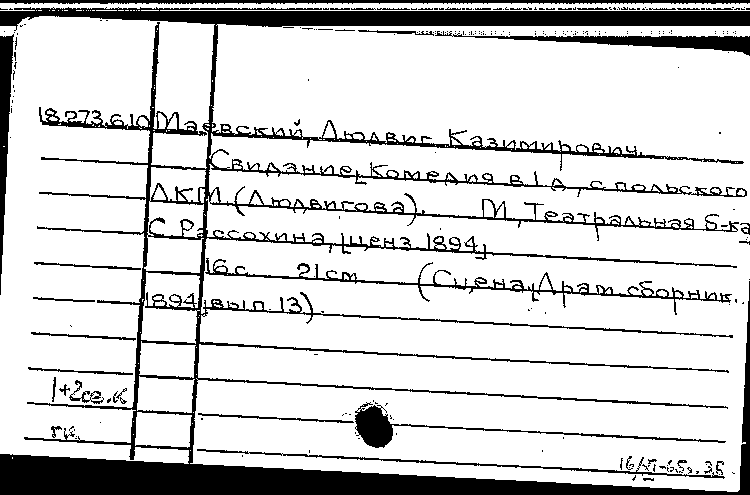 18.273.610 Маевский, Людвиг Казимирович.
Свидание, Комедия в 1 д., с польского
Л.К.М. (Людвигова). М, Театральная б-ка
С. Рассохина, [ценз. 1894]
16 с. 21 см. (Сцена, Драм. сборник.
1894, вып. 13).
1+2се.к
гк.
16/VI-65г.